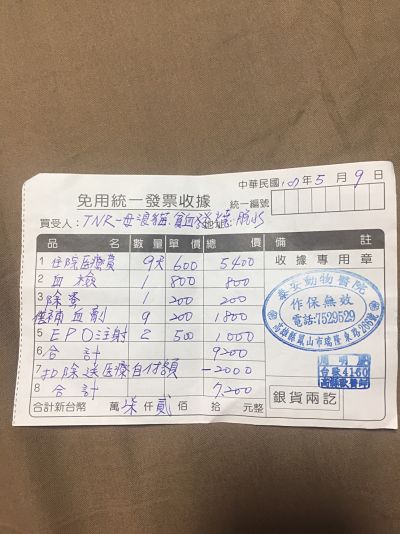 中華民國 107 年 5 月 9 日
免用統一發票收據
統一編號
買受人：TNR-母浪貓.貧血 脫水
地址：
品名 數量 單價 總價 備註
1 住院医療費 9天 600 5400
2 血檢 1 800 800
3 除蚤 1 200 200
4 補血劑 9 200 1800
5 EPO注射 2 500 1000
6 合計 9200
7 扣除送医療自付額 -2000
8 合計 7,200
合計新台幣 萬 柒 仟 貳 佰 拾 元整
收據專用章
泰安動物醫院
作保無效
電話:7529529
高雄縣鳳山市瑞隆東路206號
台獸4160
銀貨兩訖